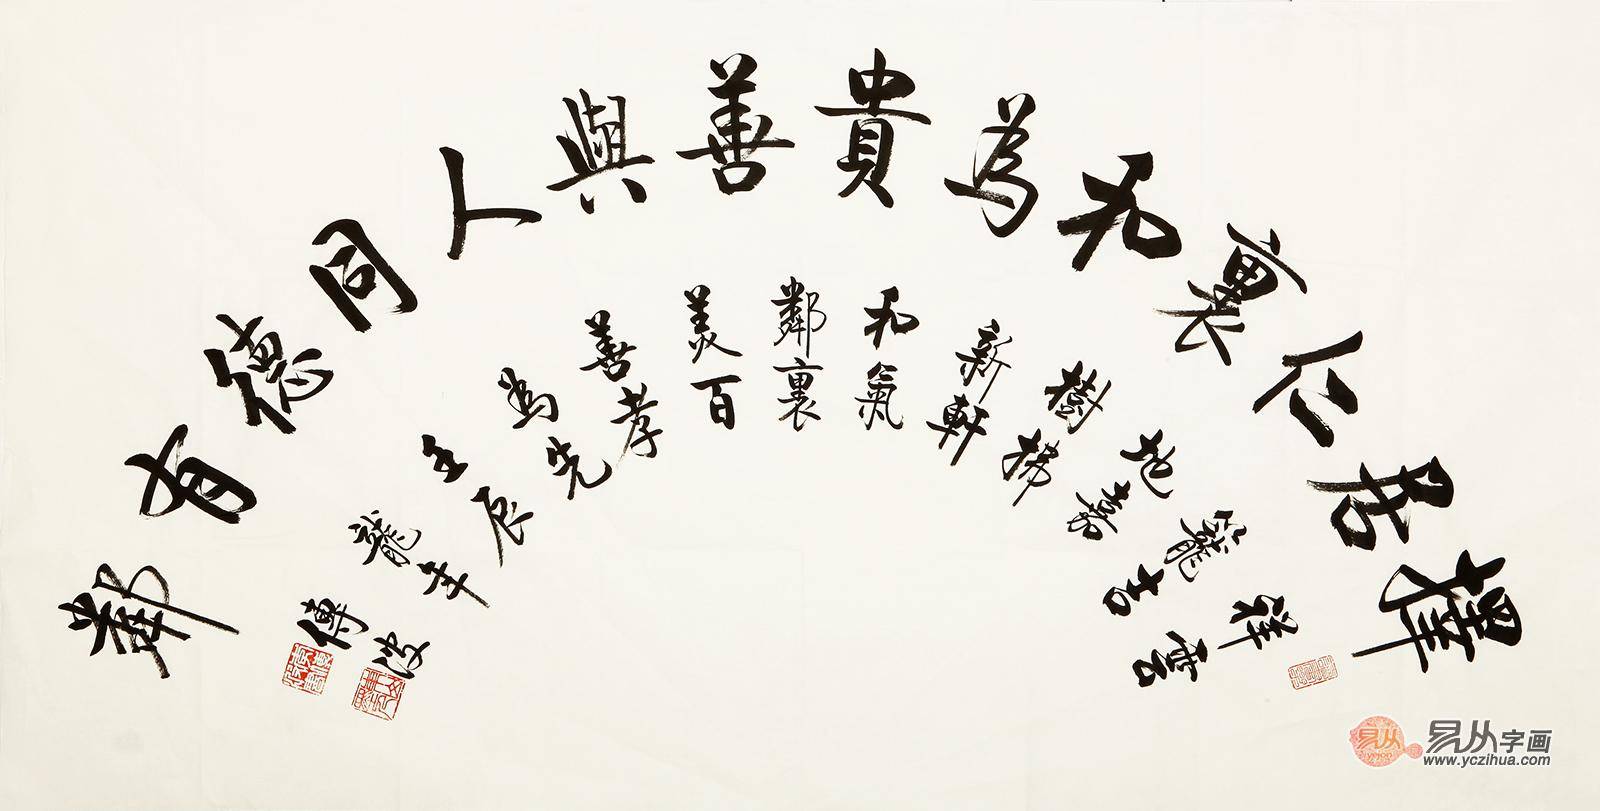 擇居仁裏和為貴善與人同德有鄰
祥雲
籠吉
地嘉
樹拂
新軒
和氣
鄰裏
美百
善孝
為先
壬辰
龍年
傅波
易从
易从字画
www.yczihua.com